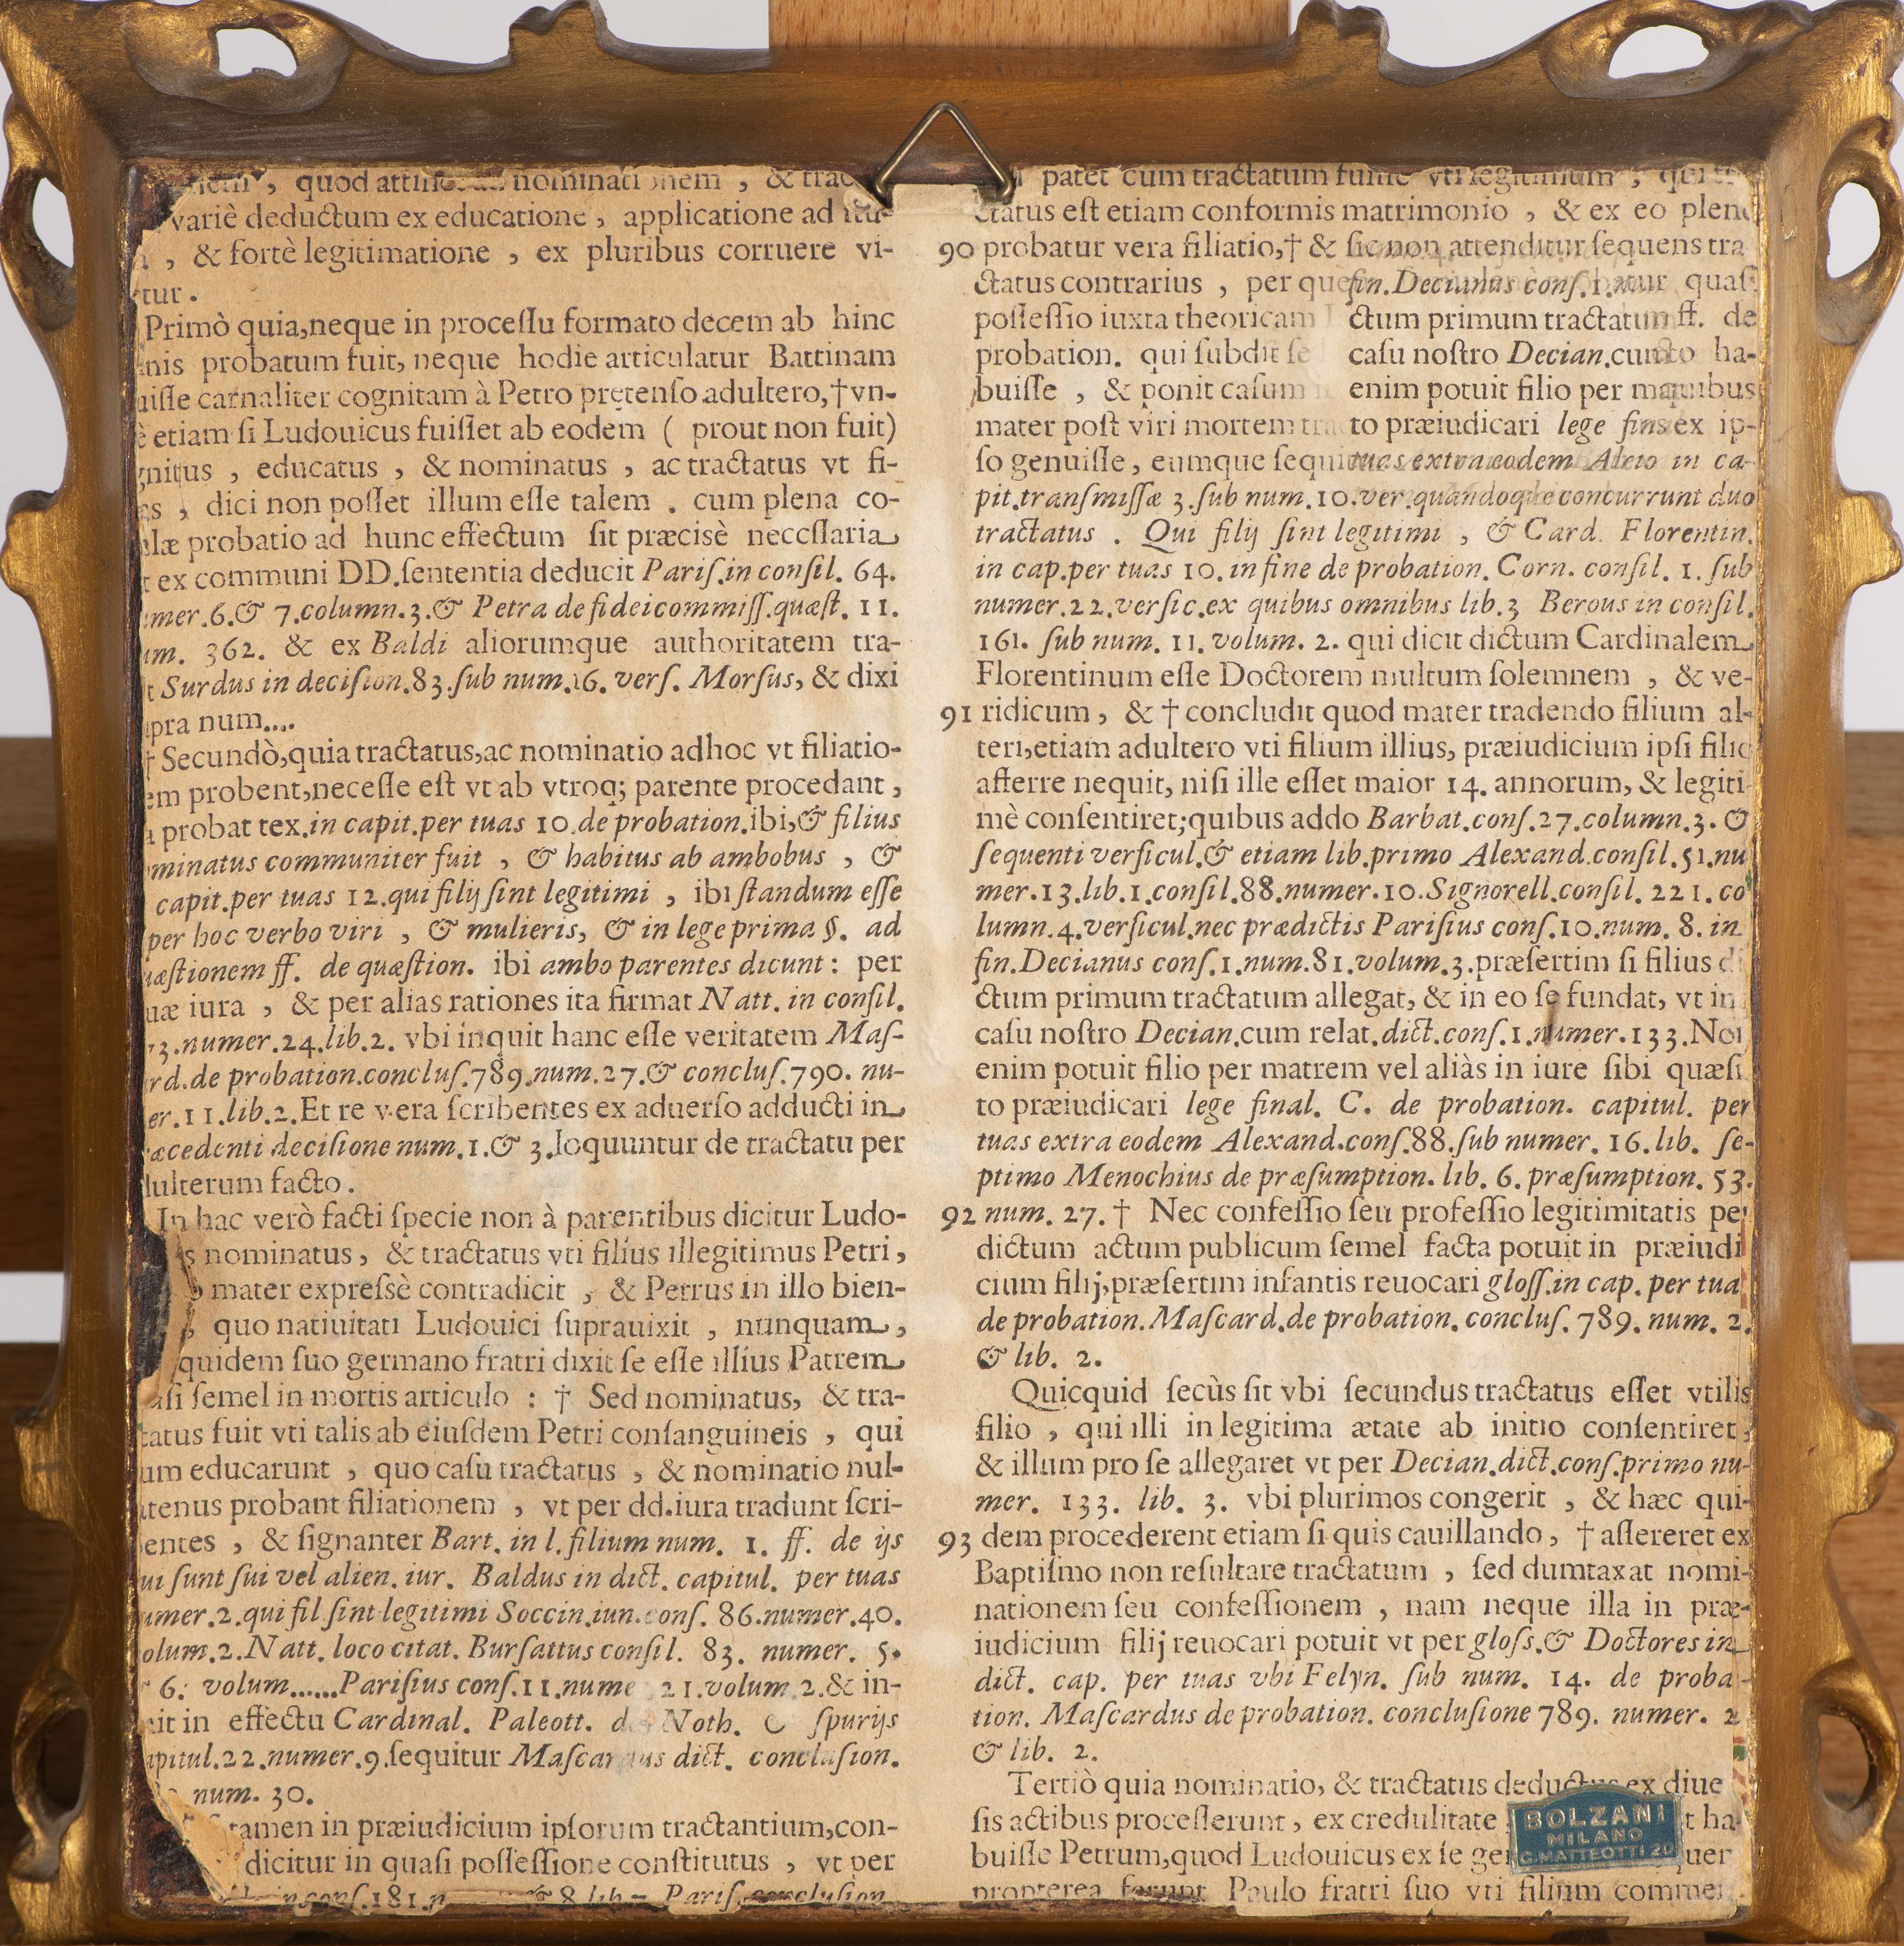 , quod nominationem , &
variè deductum ex educatione , applicatione ad
, & fortè legitimatione , ex pluribus corruere vi-
tur .
Primò quia,neque in proceſſu formato decem ab hinc
nis probatum fuit, neque hodie articulatur Battinam
uiſſe carnaliter cognitam à Petro prętenſo adultero,†vn-
è etiam ſi Ludouicus fuiſſet ab eodem ( prout non fuit)
gnitus , educatus , & nominatus , ac tractatus vt fi-
s , dici non poſſet illum eſſe talem . cum plena co-
læ probatio ad hunc effectum ſit præcisè neceſſaria
t ex communi DD.ſententia deducit Pariſ.in conſil. 64.
mer.6.& 7.column.3.& Petra de fideicommiſſ.quæſt. 11.
um. 362. & ex Baldi aliorumque authoritatem tra-
t Surdus in deciſion.83.ſub num.16. verſ. Morſus, & dixi
pra num....
† Secundò,quia tractatus,ac nominatio adhoc vt filiatio-
em probent,neceſſe eſt vt ab vtroq; parente procedant ,
probat tex.in capit.per tuas 10.de probation.ibi,& filius
minatus communiter fuit , & habitus ab ambobus , &
capit.per tuas 12.qui filij ſint legitimi , ibi ſtandum eſſe
per hoc verbo viri , & mulieris, & in lege prima §. ad
uæſtionem ff. de quæſtion. ibi ambo parentes dicunt : per
uæ iura , & per alias rationes ita firmat Natt. in conſil.
3.numer.24.lib.2. vbi inquit hanc eſſe veritatem Maſ-
rd.de probation.concluſ.789.num.27.& concluſ.790. nu-
er.11.lib.2.Et re vera ſcribentes ex aduerſo adducti in
æcedenti deciſione num.1.& 3.loquuntur de tractatu per
dulterum facto .
In hac verò facti ſpecie non à parentibus dicitur Ludo-
s nominatus , & tractatus vti filius illegitimus Petri ,
mater expreſsè contradicit , & Petrus in illo bien-
, quo natiuitati Ludouici ſuprauixit , nunquam ,
quidem ſuo germano fratri dixit ſe eſſe illius Patrem
aſi ſemel in mortis articulo : † Sed nominatus, & tra-
tatus fuit vti talis ab eiuſdem Petri conſanguineis , qui
um educarunt , quo caſu tractatus , & nominatio nul-
tenus probant filiationem , vt per dd.iura tradunt ſcri-
entes , & ſignanter Bart. in l. filium num. 1. ff. de ijs
ui ſunt ſui vel alien. iur. Baldus in dict. capitul. per tuas
umer.2.qui fil ſint legitimi Soccin.iun.conſ. 86.numer.40.
olum.2.Natt. loco citat. Burſattus conſil. 83. numer. 5.
6. volum......Pariſius conſ.11.nume 21.volum.2.& in-
it in effectu Cardinal. Paleott. de Noth. & ſpurijs
apitul.22.numer.9.ſequitur Maſcardus dict. concluſion.
num. 30.
tamen in præiudicium ipſorum tractantium,con-
dicitur in quaſi poſſeſſione conſtitutus , vt per
conſ.181.n & 8 lib Pariſ.concluſion
patet cum tractatum fuiſſe vti legitimum , qui
ctatus eſt etiam conformis matrimonio , & ex eo plen
90 probatur vera filiatio,† & ſic non attenditur ſequens tra
ctatus contrarius , per que fin.Decianus conſ.1. quaſi
poſſeſſio iuxta theoricam ctum primum tractatum ff. de
probation. qui ſubdit ſe caſu noſtro Decian.cum ha-
buiſſe , & ponit caſum enim potuit filio per ma quibus
mater poſt viri mortem tra to præiudicari lege fin ex ip-
ſo genuiſſe, eumque ſequi tuas extra eodem Ale in ca-
pit.tranſmiſſæ 3.ſub num.10.ver.quandoque concurrunt duo
tractatus . Qui filij ſint legitimi , & Card. Florentin.
in cap.per tuas 10. in fine de probation. Corn. conſil. 1. ſub
numer.22.verſic.ex quibus omnibus lib.3 Berous in conſil.
161. ſub num. 11. volum. 2. qui dicit dictum Cardinalem
Florentinum eſſe Doctorem multum ſolemnem , & ve-
91 ridicum , & † concludit quod mater tradendo filium al-
teri,etiam adultero vti filium illius, præiudicium ipſi filio
afferre nequit, niſi ille eſſet maior 14. annorum, & legiti-
mè conſentiret;quibus addo Barbat.conſ.27.column.3. &
ſequenti verſicul.& etiam lib.primo Alexand.conſil.51.nu
mer.13.lib.1.conſil.88.numer.10.Signorell.conſil. 221. co
lumn.4.verſicul.nec prædictis Pariſius conſ.10.num. 8. in
fin.Decianus conſ.1.num.81.volum.3.præſertim ſi filius di
ctum primum tractatum allegat, & in eo ſe fundat, vt in
caſu noſtro Decian.cum relat.dict.conſ.1.numer.133.Non
enim potuit filio per matrem vel aliàs in iure ſibi quæſi
to præiudicari lege final. C. de probation. capitul. per
tuas extra eodem Alexand.conſ.88.ſub numer. 16. lib. ſe-
ptimo Menochius de præſumption. lib. 6. præſumption. 53.
92 num. 27. † Nec confeſſio ſeu profeſſio legitimitatis per
dictum actum publicum ſemel facta potuit in præiudi
cium filij,præſertim infantis reuocari gloſſ.in cap. per tua
de probation.Maſcard.de probation. concluſ. 789. num. 2.
& lib. 2.
Quicquid ſecùs ſit vbi ſecundus tractatus eſſet vtilis
filio , qui illi in legitima ætate ab initio conſentiret,
& illum pro ſe allegaret vt per Decian.dict.conſ.primo nu-
mer. 133. lib. 3. vbi plurimos congerit , & hæc qui-
93 dem procederent etiam ſi quis cauillando , † aſſereret ex
Baptiſmo non reſultare tractatum , ſed dumtaxat nomi-
nationem ſeu confeſſionem , nam neque illa in præ-
iudicium filij reuocari potuit vt per gloſs.& Doctores in
dict. cap. per tuas vbi Felyn. ſub num. 14. de proba-
tion. Maſcardus de probation. concluſione 789. numer. 2
& lib. 2.
Tertiò quia nominatio, & tractatus deductus ex diue
ſis actibus proceſſerunt , ex credulitate t ha-
buiſſe Petrum,quod Ludouicus ex ſe ge uer
propterea ferunt Paulo fratri ſuo vti filium comme
BOLZANI
MILANO
C. MATTEOTTI 20